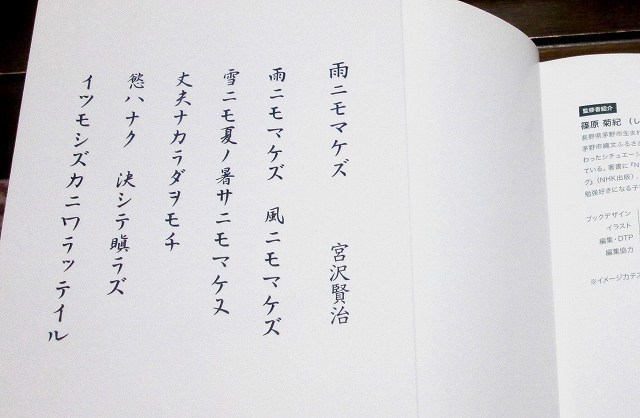 雨ニモマケズ　宮沢賢治
雨ニモマケズ　風ニモマケズ
雪ニモ夏ノ暑サニモマケヌ
丈夫ナカラダヲモチ
慾ハナク　決シテ瞋ラズ
イツモシズカニワラッテイル
監修者紹介
篠原 菊紀（し
長野県茅野市生まれ
茅野市縄文ふるさ
わったシチュエーシ
ている。著書に『N
グ』（NHK出版）、
勉強好きになる子
ブックデザイン
イラスト
編集・DTP
編集協力
※イメージカテス